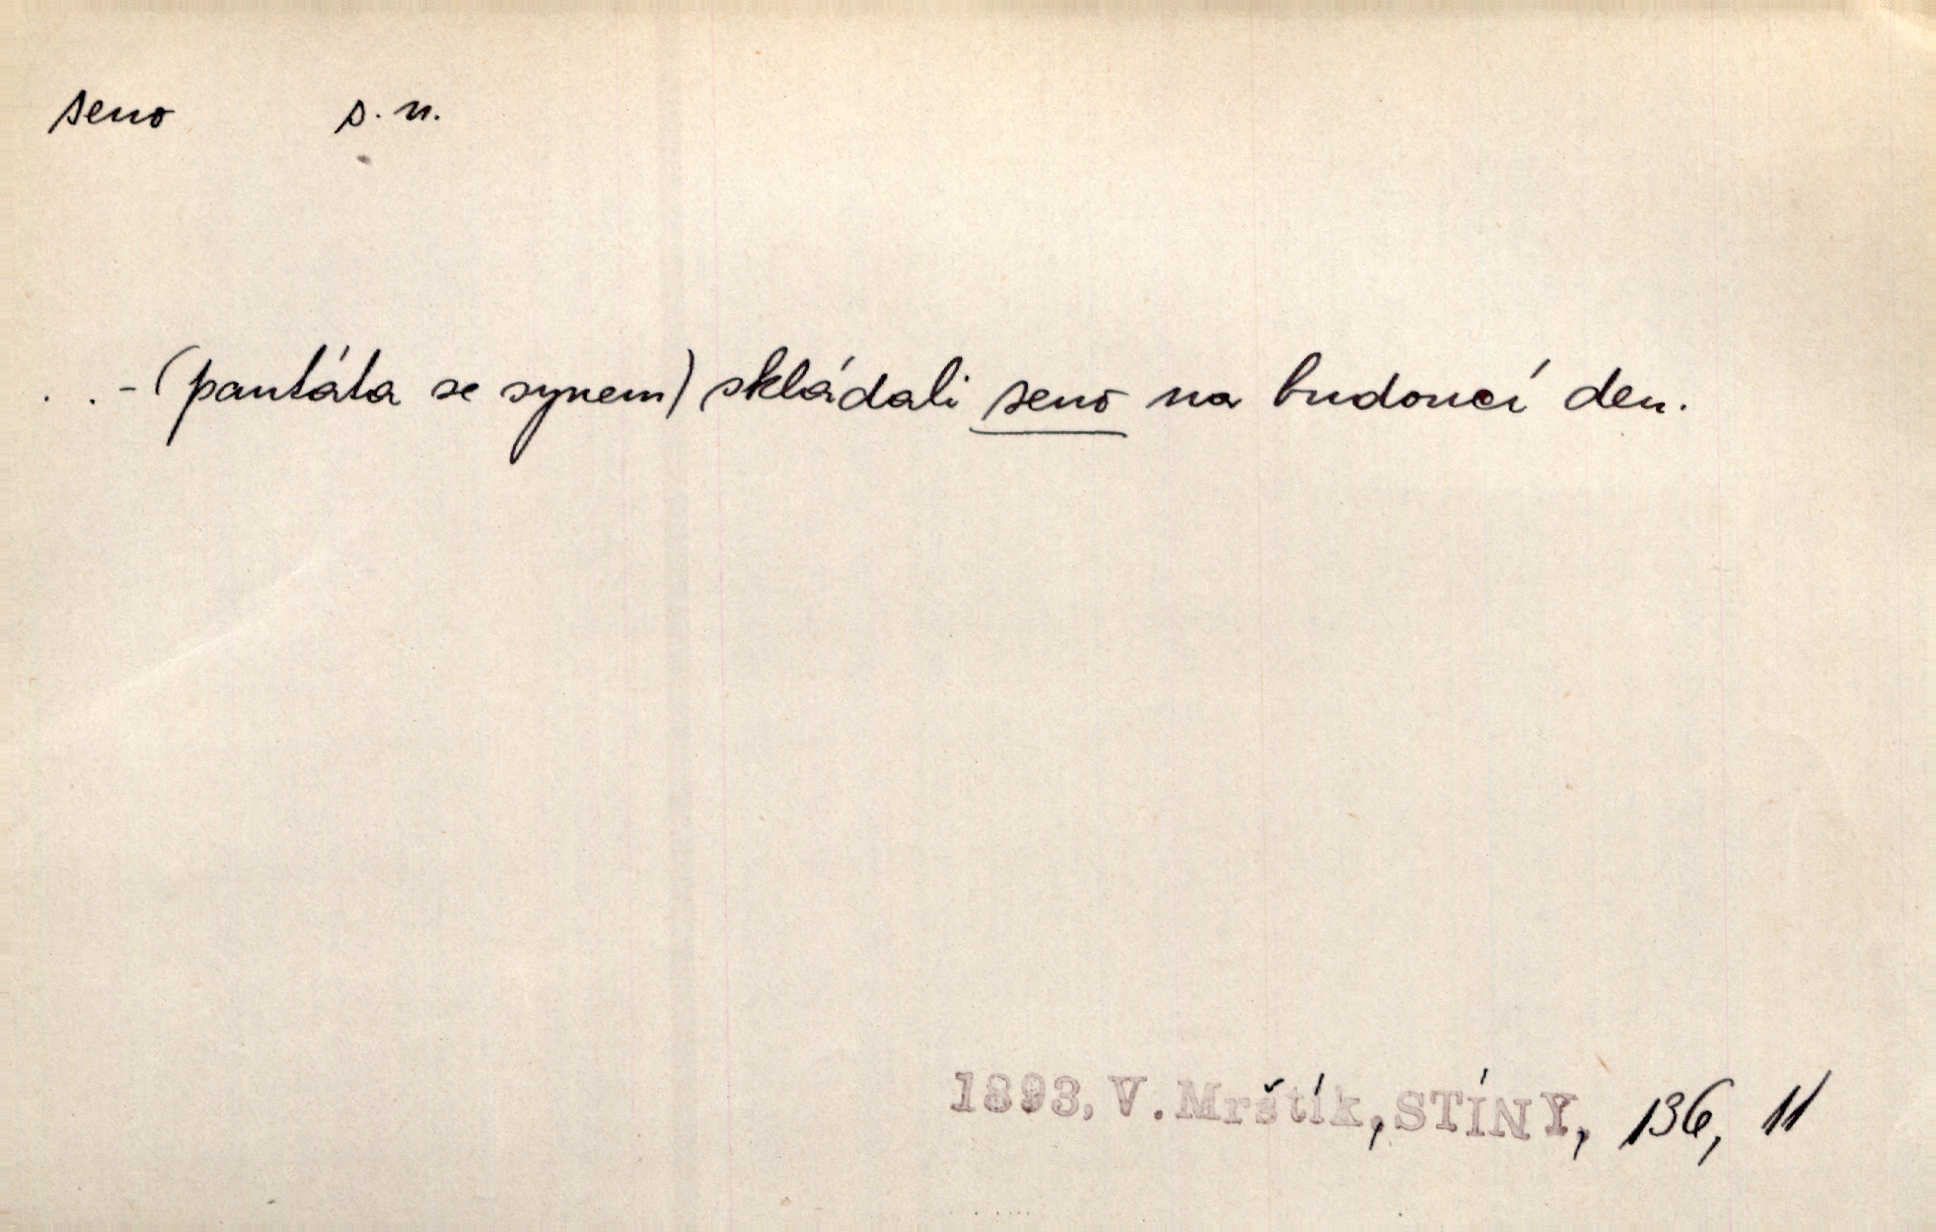 seno s. n.
. . - (pantáta se synem) skládali seno na budoucí den.
1893, V. Mrštík, STÍNY, 136, 11